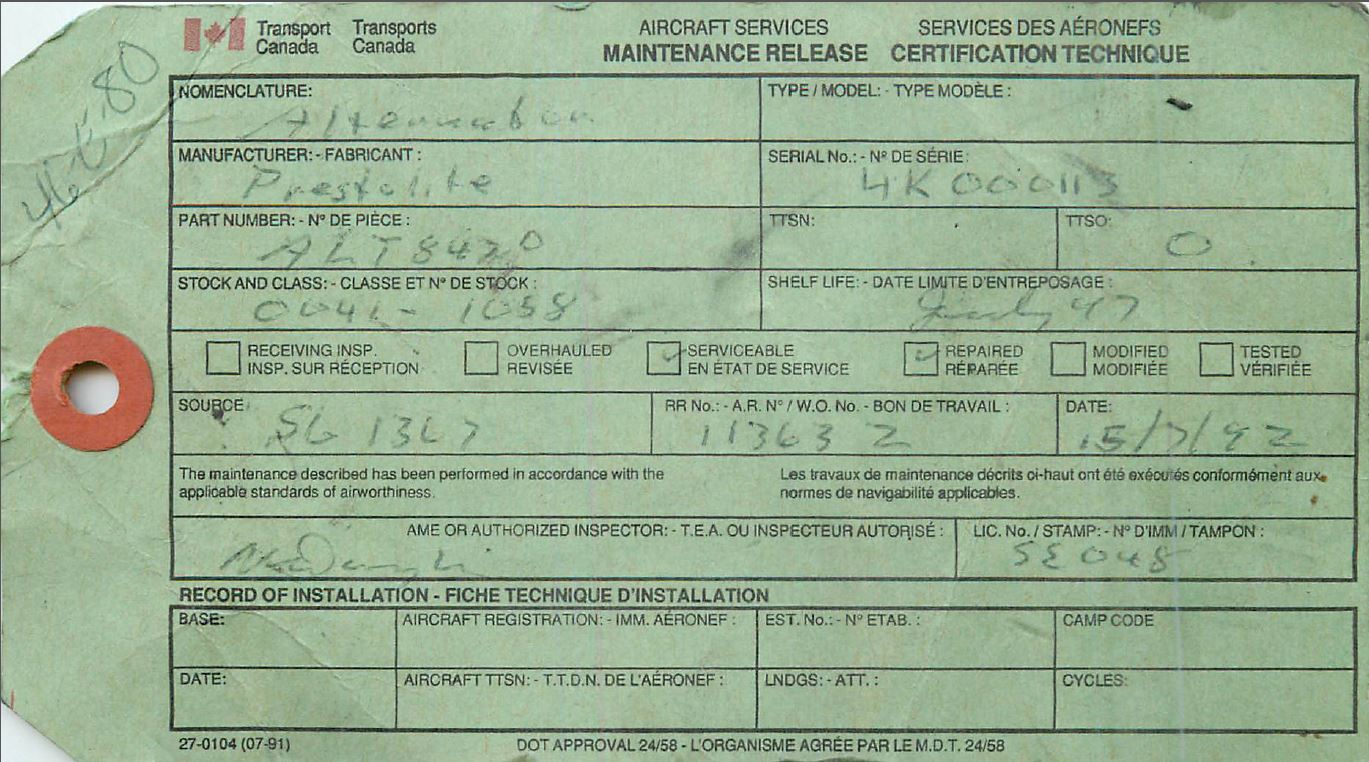 Transport Canada Transports Canada
AIRCRAFT SERVICES SERVICES DES AÉRONEFS
MAINTENANCE RELEASE CERTIFICATION TECHNIQUE
NOMENCLATURE: TYPE / MODEL: - TYPE MODÈLE :
MANUFACTURER: - FABRICANT : SERIAL No.: - Nº DE SÉRIE:
Prestolite 4K000113
PART NUMBER: - Nº DE PIÈCE : TTSN: TTSO:
ALT8420 0
STOCK AND CLASS: - CLASSE ET Nº DE STOCK : SHELF LIFE: - DATE LIMITE D'ENTREPOSAGE :
0041 - 1058 July 47
RECEIVING INSP. OVERHAULED SERVICEABLE REPAIRED MODIFIED TESTED
INSP. SUR RÉCEPTION REVISÉE EN ÉTAT DE SERVICE RÉPARÉE MODIFIÉE VÉRIFIÉE
SOURCE: RR No.: - A.R. Nº / W.O. No. - BON DE TRAVAIL : DATE:
11363 2 15/7/92
The maintenance described has been performed in accordance with the Les travaux de maintenance décrits ci-haut ont été exécutés conformément aux
applicable standards of airworthiness. normes de navigabilité applicables.
AME OR AUTHORIZED INSPECTOR: - T.E.A. OU INSPECTEUR AUTORISÉ : LIC. No. / STAMP: - Nº D'IMM / TAMPON :
SE 048
RECORD OF INSTALLATION - FICHE TECHNIQUE D'INSTALLATION
BASE: AIRCRAFT REGISTRATION: - IMM. AÉRONEF : EST. No.: - Nº ETAB. : CAMP CODE
DATE: AIRCRAFT TTSN: - T.T.D.N. DE L'AÉRONEF : LNDGS: - ATT. : CYCLES:
27-0104 (07-91) DOT APPROVAL 24/58 - L'ORGANISME AGRÉE PAR LE M.D.T. 24/58